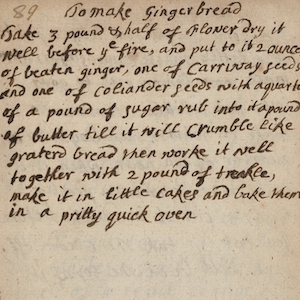 89 To make Gingerbread
Take 3 pound & half of flower dry it
well before ye fire, and put to it 2 ounce
of beaten ginger, one of Carriway seeds
and one of Coliander seeds with a quarte
of a pound of sugar rub into it a pound
of butter till it will Crumble like
graterd bread then worke it well
together with 2 pound of treakle,
make it in little Cakes and bake them
in a pritty quick oven